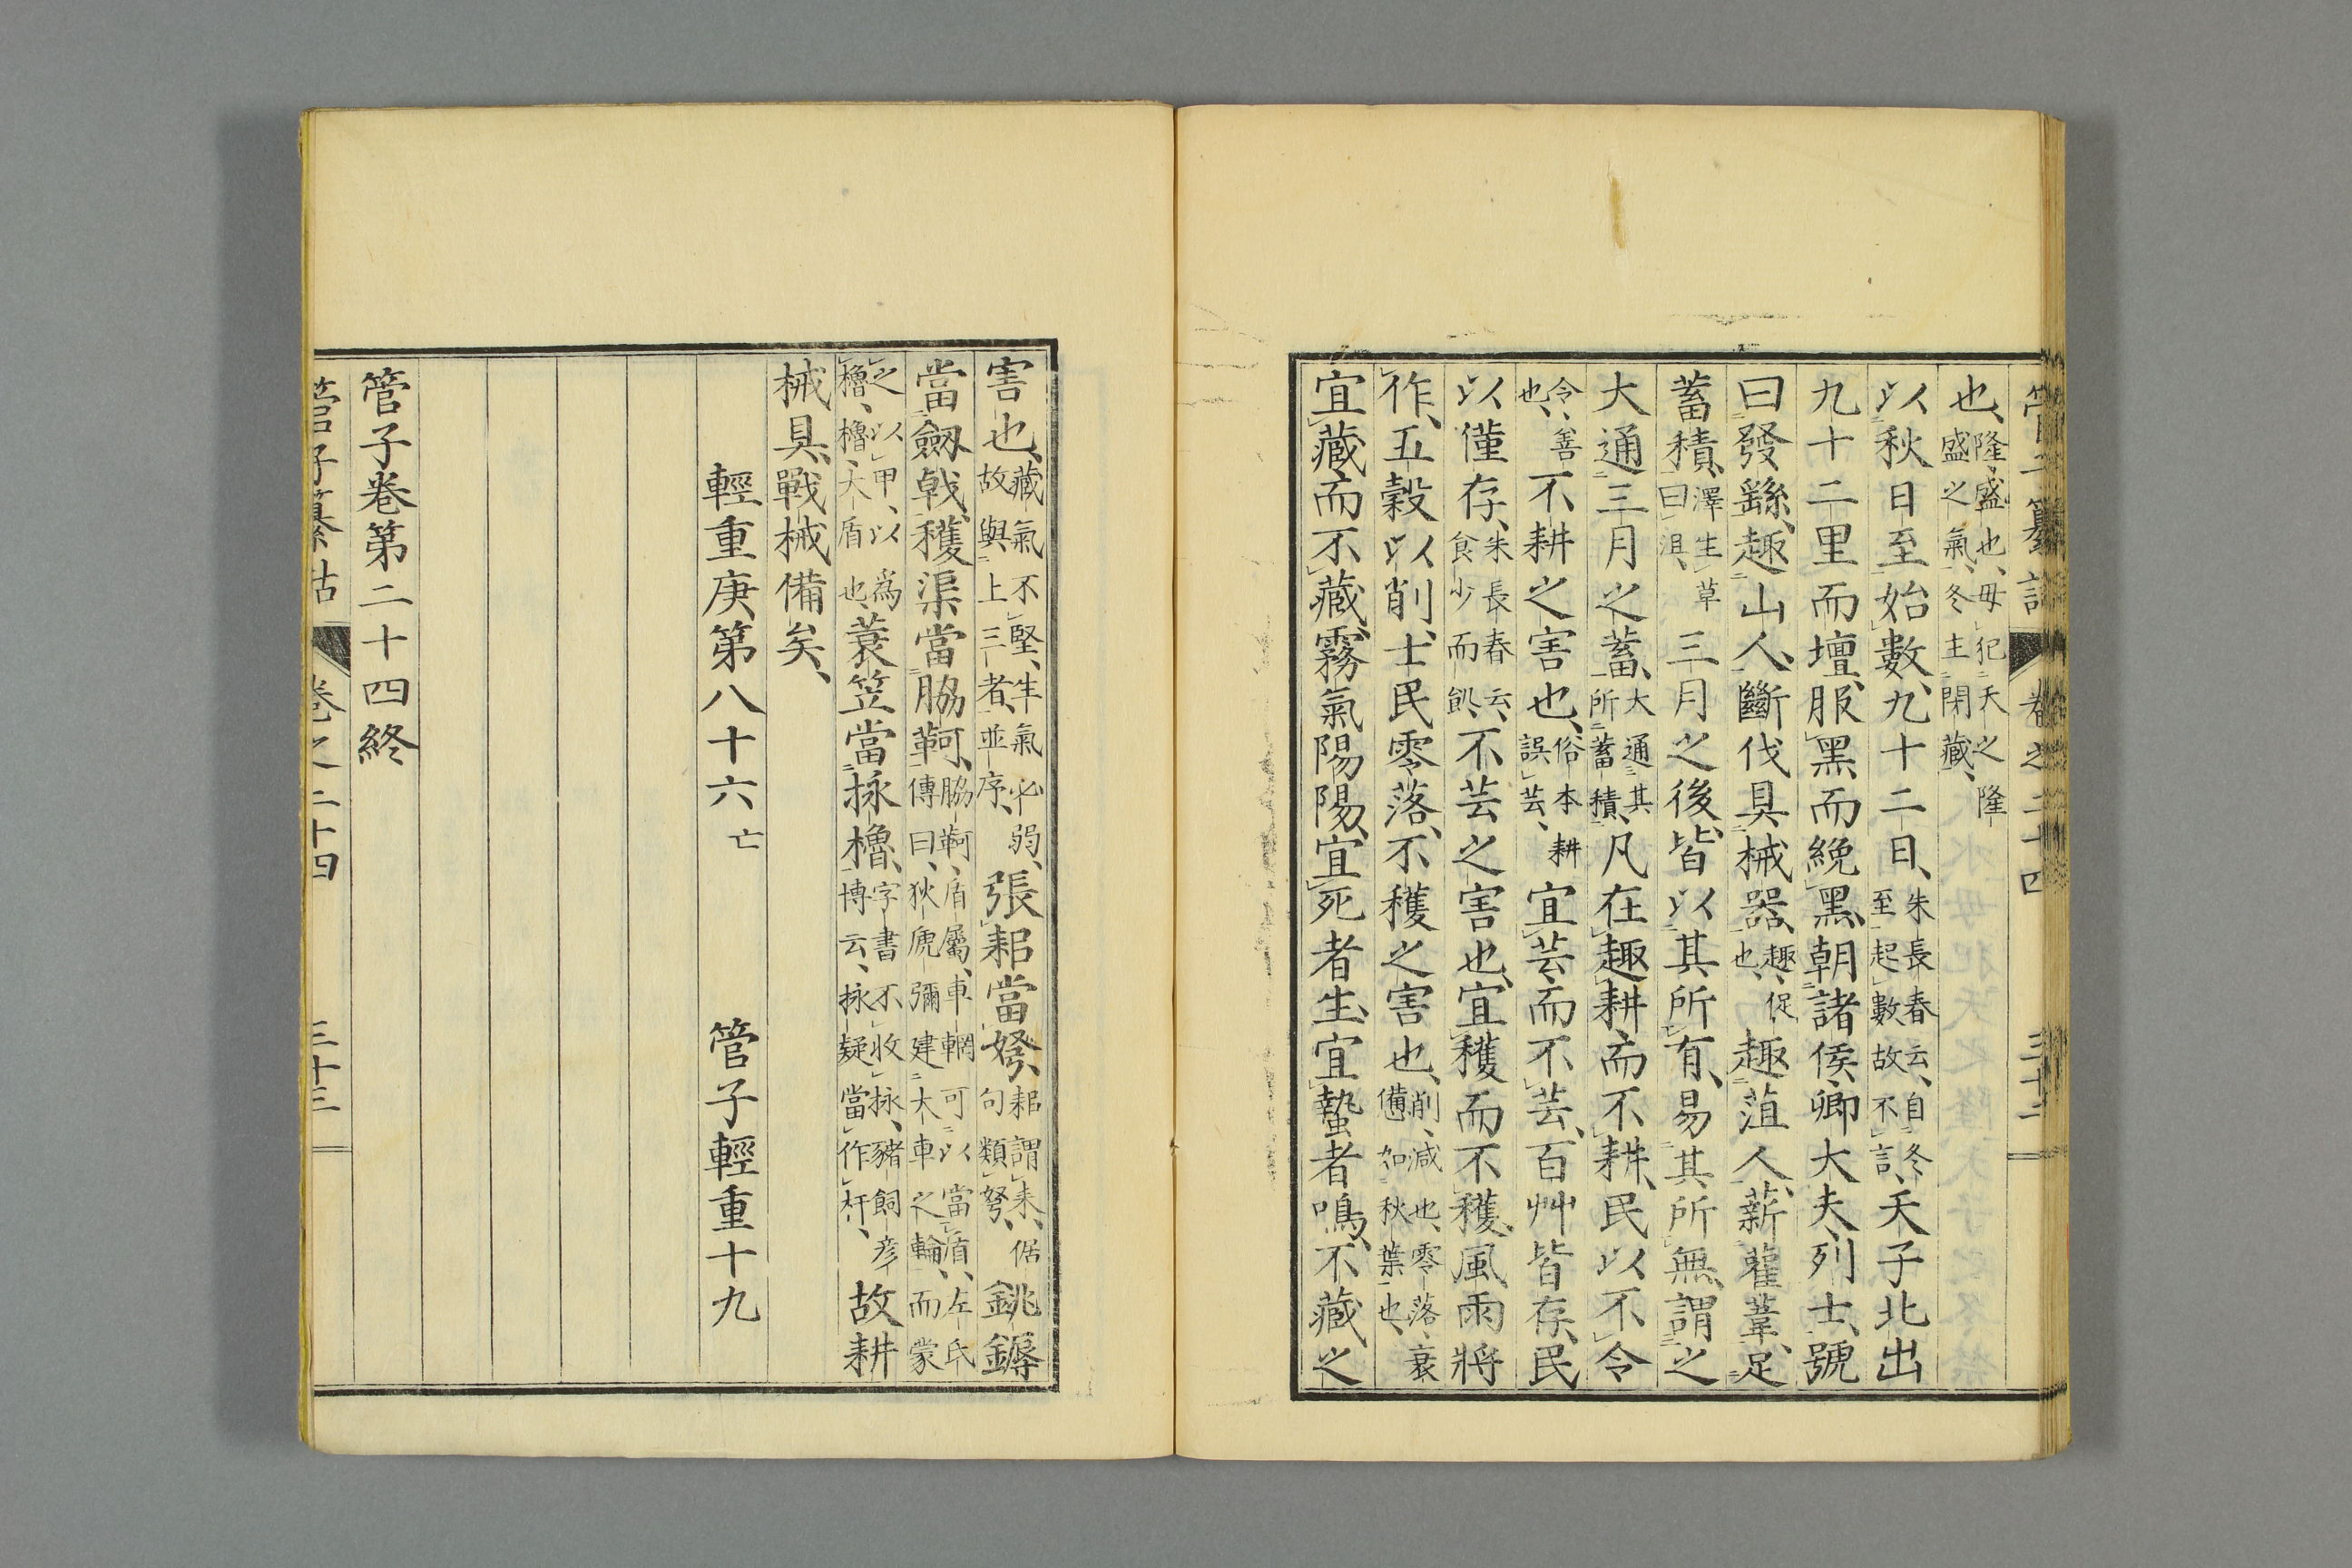 管子纂詁 卷之二十四 三十二
也、隆、盛也、毋犯天之隆盛之氣、冬主閉藏、
以秋日至始數、九十二日、朱長春云、自冬至起數、故不言、天子北出
九十二里而壇、服黑而絻黑、朝諸侯卿大夫列士、號
曰發繇、趣山人斷伐、具械器、趣、促也、趣菹人、薪雚葦、足
蓄積、澤生草曰沮、三月之後、皆以其所有、易其所無、謂之
大通三月之蓄、大通其所蓄積、凡在趣耕、而不耕、民以不令
令、善也、不耕之害也、俗本耕誤芸、宜芸、而不芸、百艸皆存、民
以僅存、朱長春云、食少而飢、不芸之害也、宜穫而不穫、風雨將
作、五穀以削、士民零落、不穫之害也、削、減也、零落、衰憊如秋葉也、
宜藏而不藏、霧氣陽陽、宜死者生、宜蟄者鳴、不藏之
害也、藏氣不堅、生氣必弱、故與上三者並序、張耜當弩、耜謂耒、倨句類弩、銚鎒
當劔戟、穫渠當脇軻、脇軻、盾屬、車輞可以當盾、左氏傳曰、狄虒彌建大車之輪、而蒙
之以甲、以爲櫓、櫓、大盾也、蓑笠當㧒櫓、字書不收㧒、豬飼彦博云、㧒疑當作杆、故耕
械具、戰械備矣、
輕重庚第八十六亡 管子輕重十九
管子卷第二十四終
管子纂詁 卷之二十四 三十三